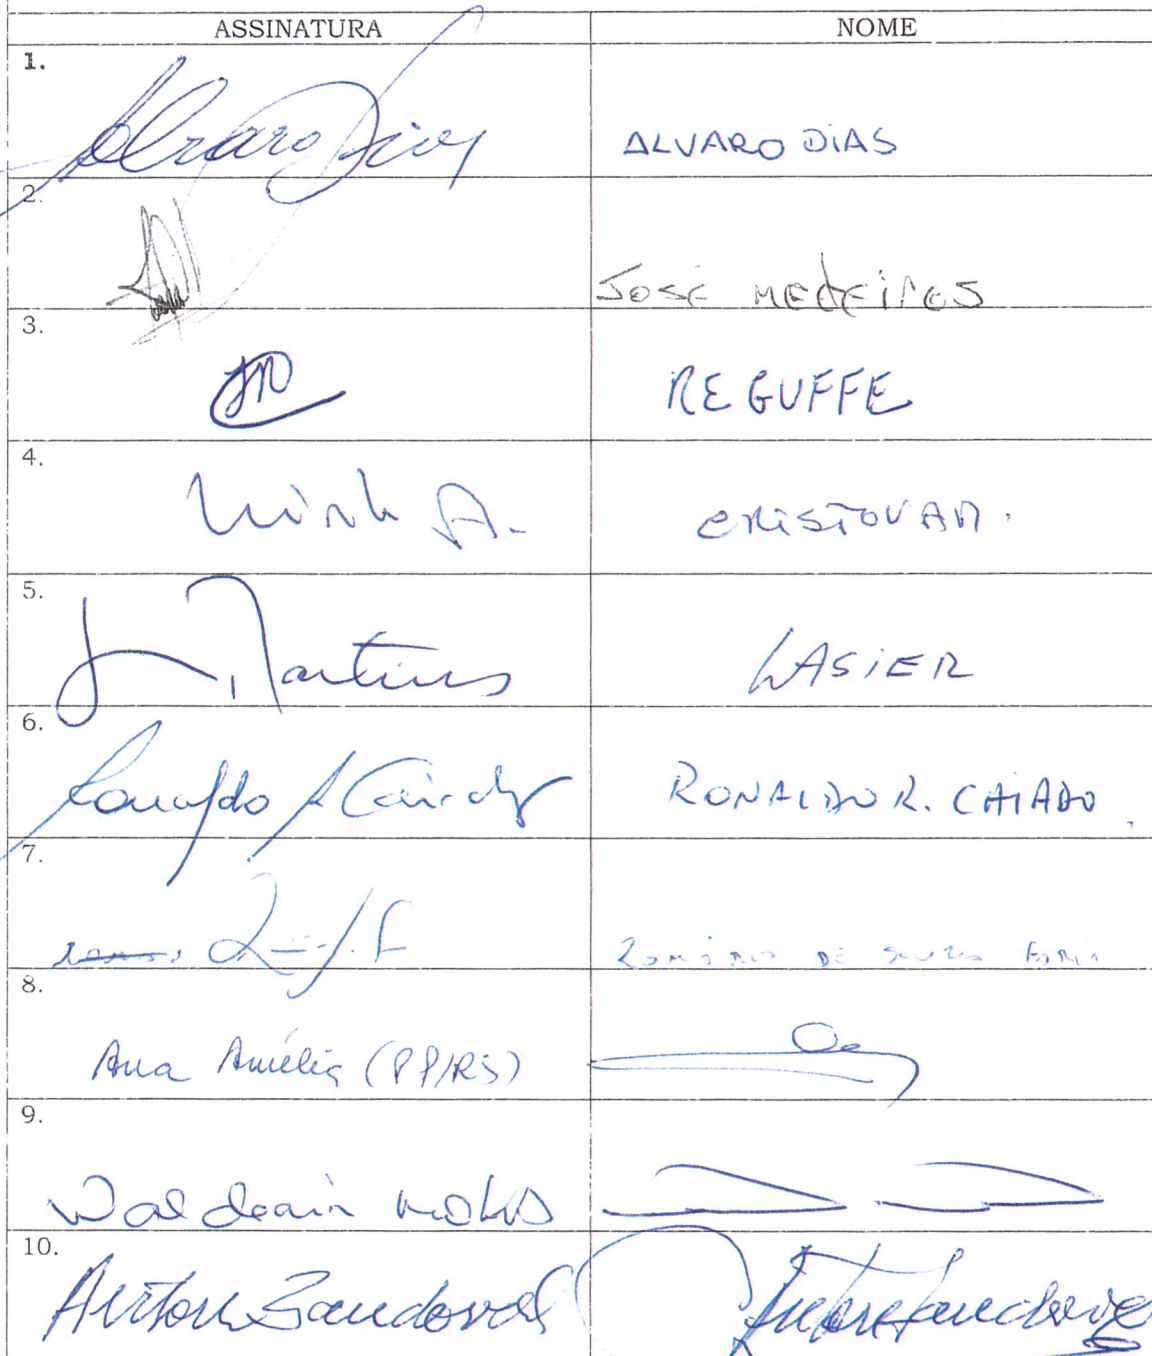 ASSINATURA NOME
1.
Alvaro Dias ALVARO DIAS
2.
José MEDEIROS
3.
REGUFFE
4.
CRISTOVAM.
5.
Martins LASIER
6.
Ronaldo R Caiado RONALDO R. CAIADO
7.
ROMÁRIO DE SOUZA FARIA
8.
Ana Amélia (PP/RS)
9.
Waldemir MOKA
10.
Airton Sandoval Airton Sandoval